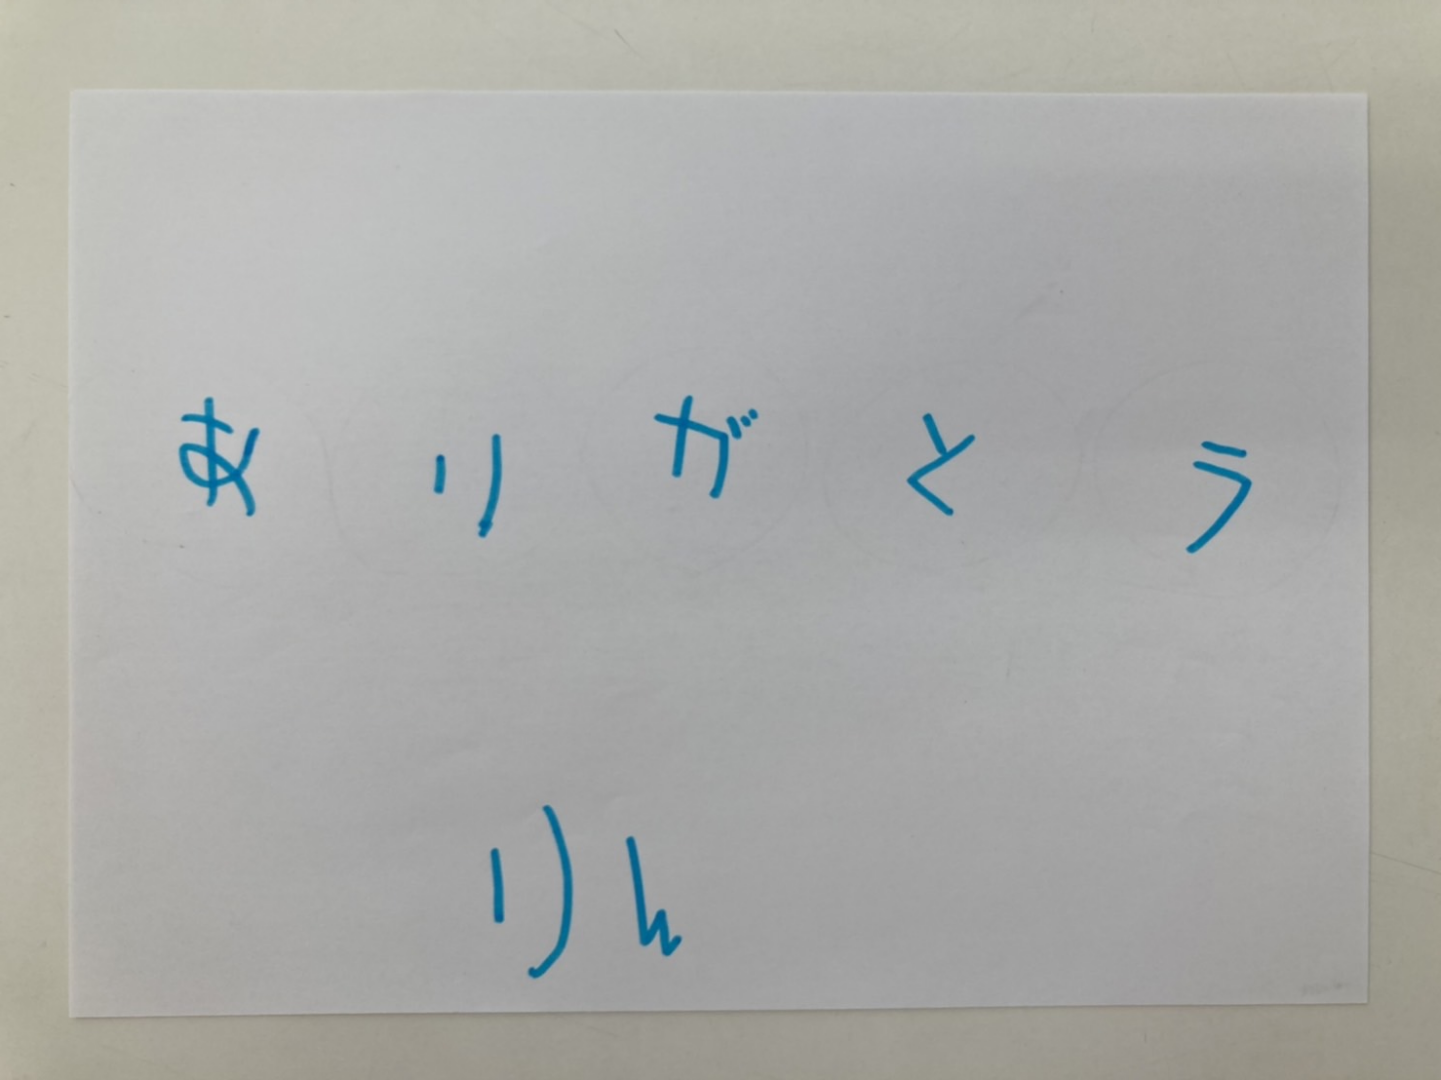 ありがとう
りん